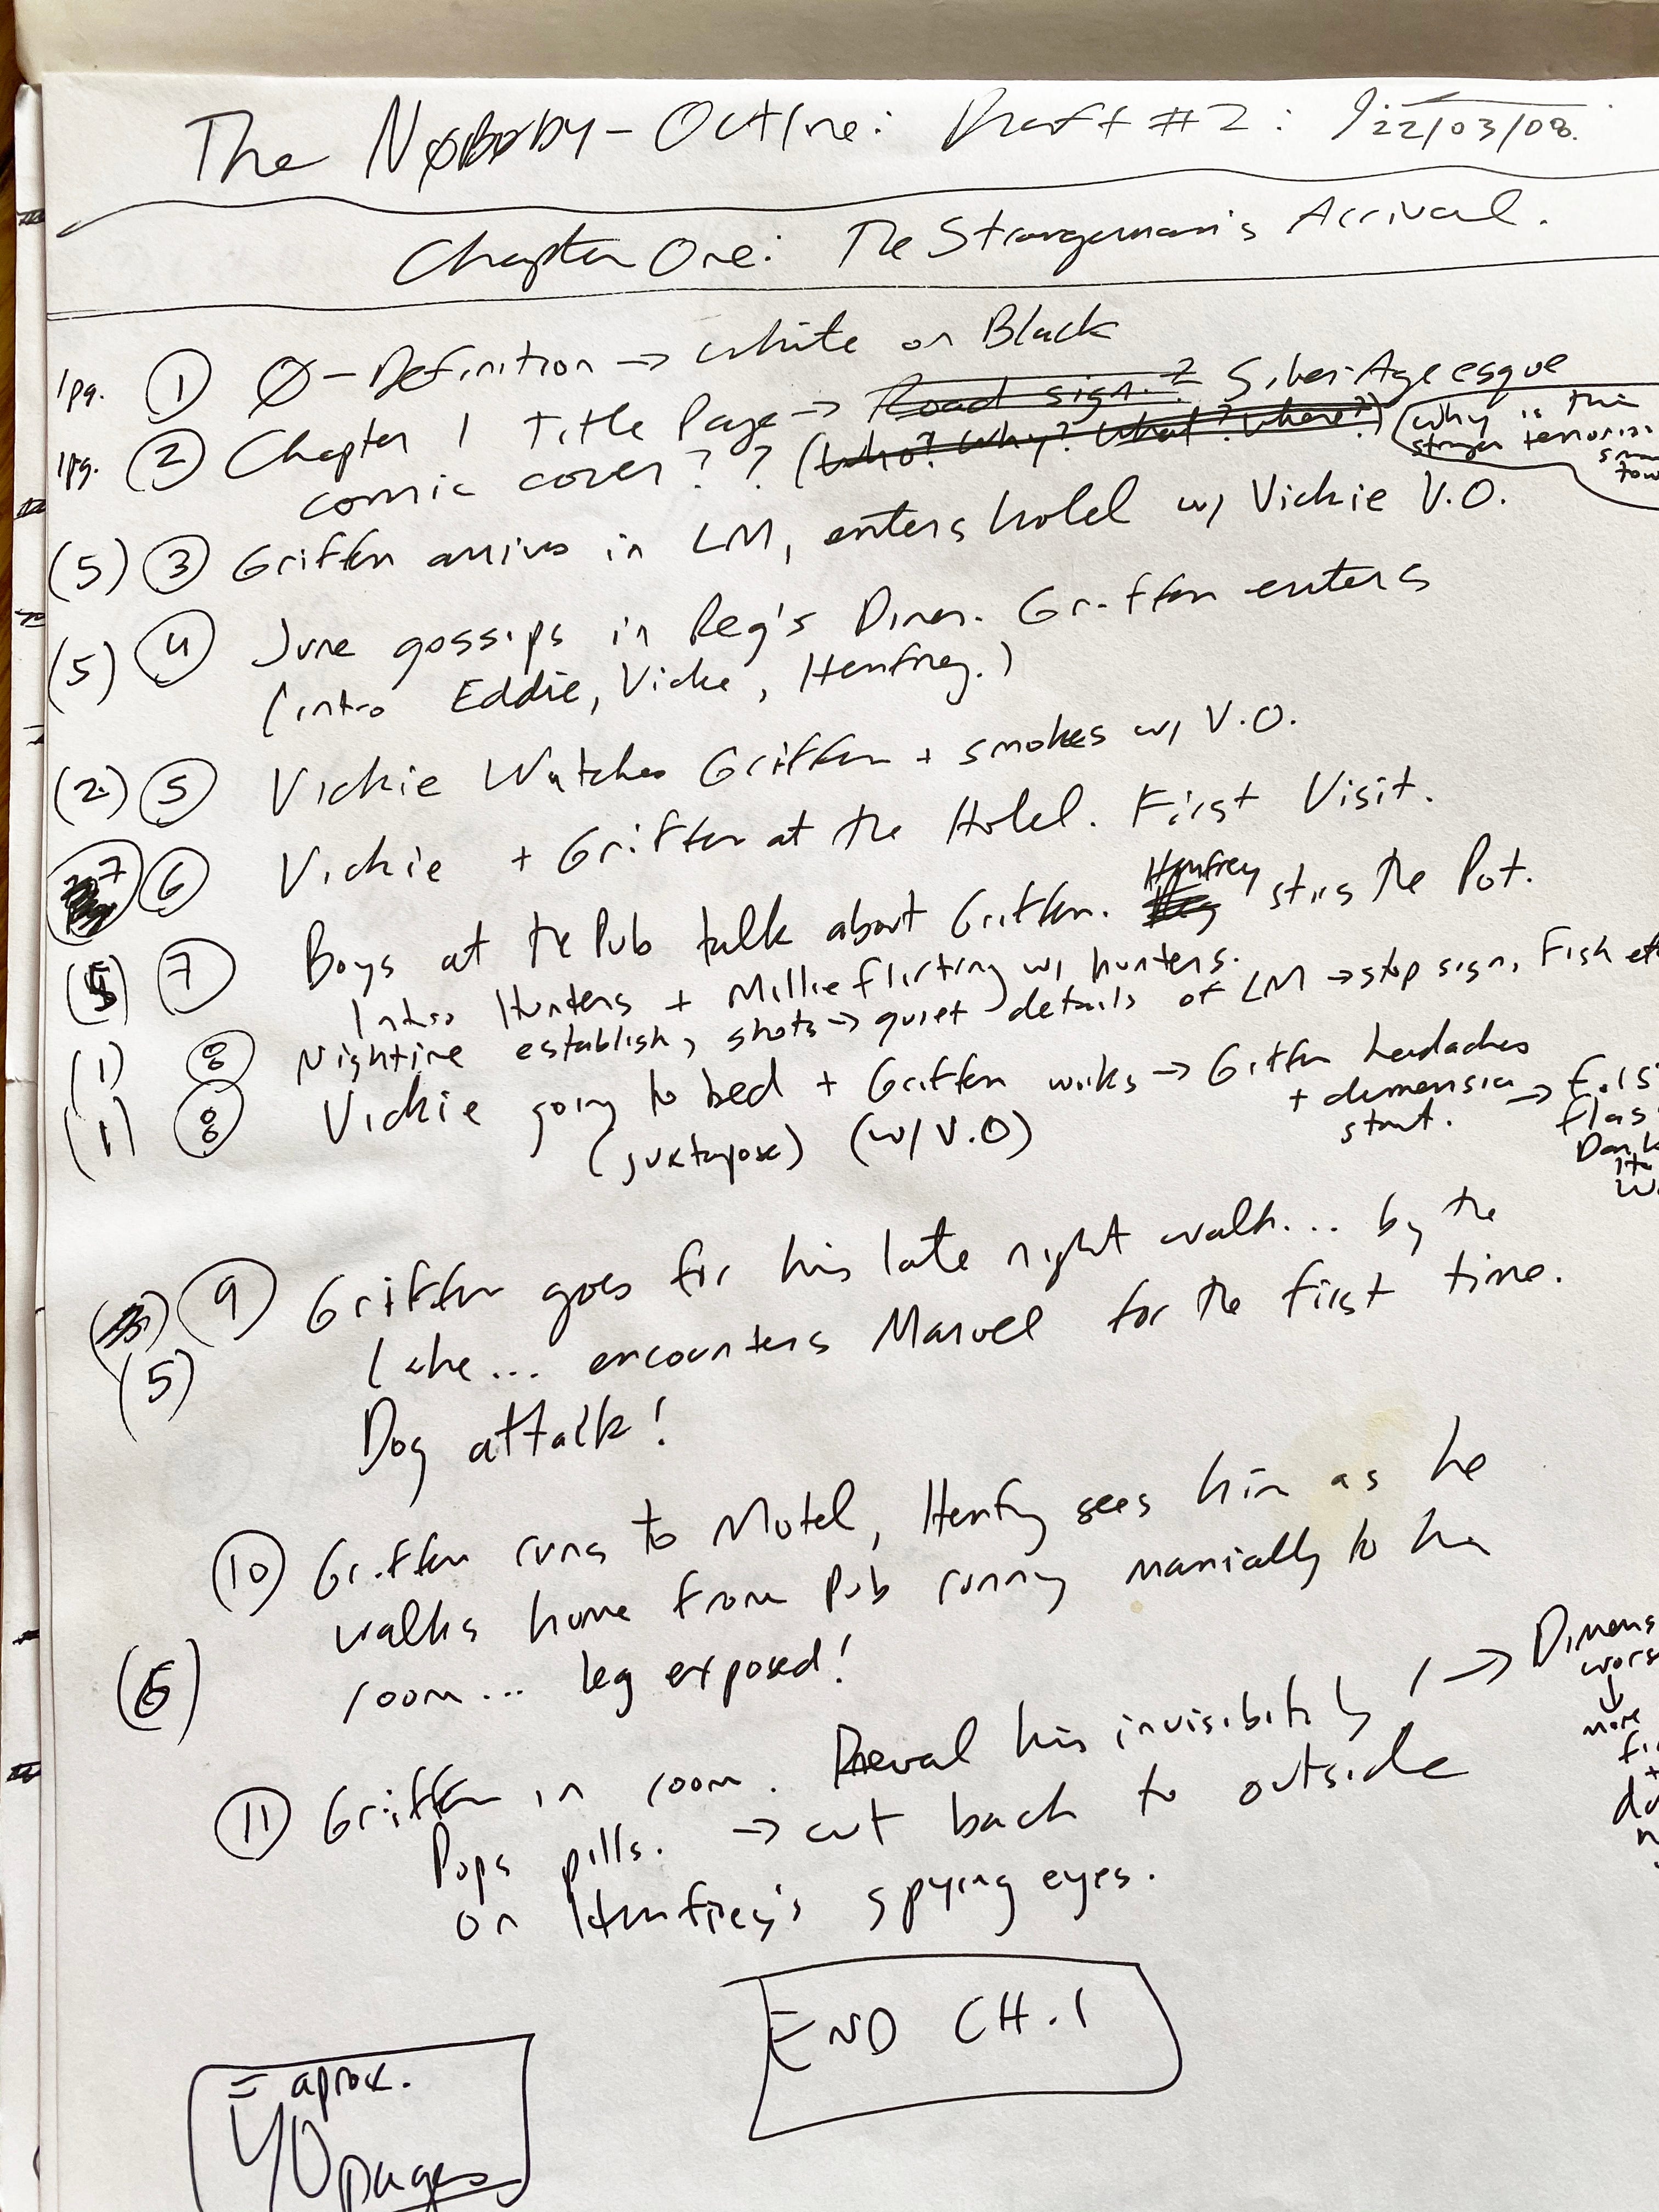 The Nobody - Outline: Draft #2: 22/03/08.
Chapter One: The Strangeman's Arrival.
1pg. ① Ø - Definition → white or Black
1pg. ② Chapter 1 Title Page → Road sign.? Silver-Age esque
comic cover?? (Who? Why? What? Where?) (Why is this
stranger terrorizi
small
tow
(5) ③ Griffen arrives in LM, enters hotel w/ Vickie V.O.
(5) ④ June gossips in Reg's Diner. Griffen enters
(intro Eddie, Vickie, Henfrey.)
(2) ⑤ Vickie Watches Griffen + smokes w/ V.O.
7 ⑥ Vickie + Griffen at the Hotel. First Visit.
(5) ⑦ Boys at the Pub talk about Griffen. Henfrey stirs the Pot.
Intro Hunters + Millie flirting w/ hunters.
(1) ⑧ Nightime establish, shots → quiet details of LM → stop sign, Fish etc
(1) ⑧ Vickie going to bed + Griffen works → Griffen headaches
+ dimensia → First
start. flas
(juxtapose) (w/ V.O) Dark
Ite
W
⑨ Griffen goes for his late night walk... by the
(5) lake... encounters Marvel for the first time.
Dog attack!
⑩ Griffen runs to Motel, Henfry sees him as he
walks home from Pub running manically to his
(6) room... leg exposed!
⑪ Griffen in room. Reveal his invisibility! → Dimens
wors
↓
more
Pops pills. → cut back to outside
on Henfrey's spying eyes.
END CH.1
= aprox.
40 pages